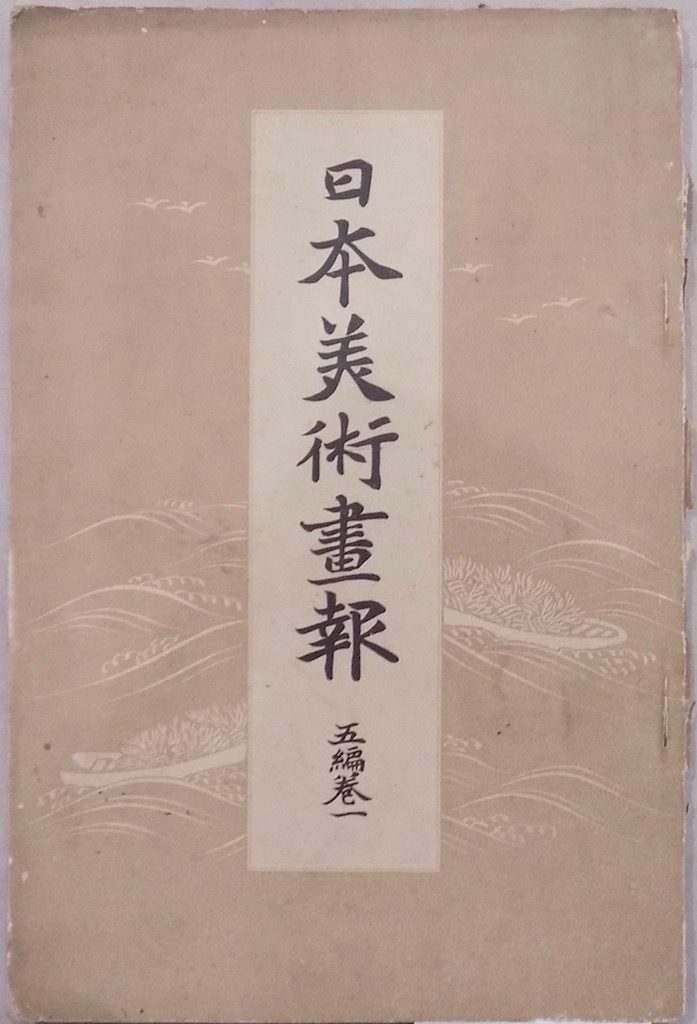 日本美術畫報
五編巻一